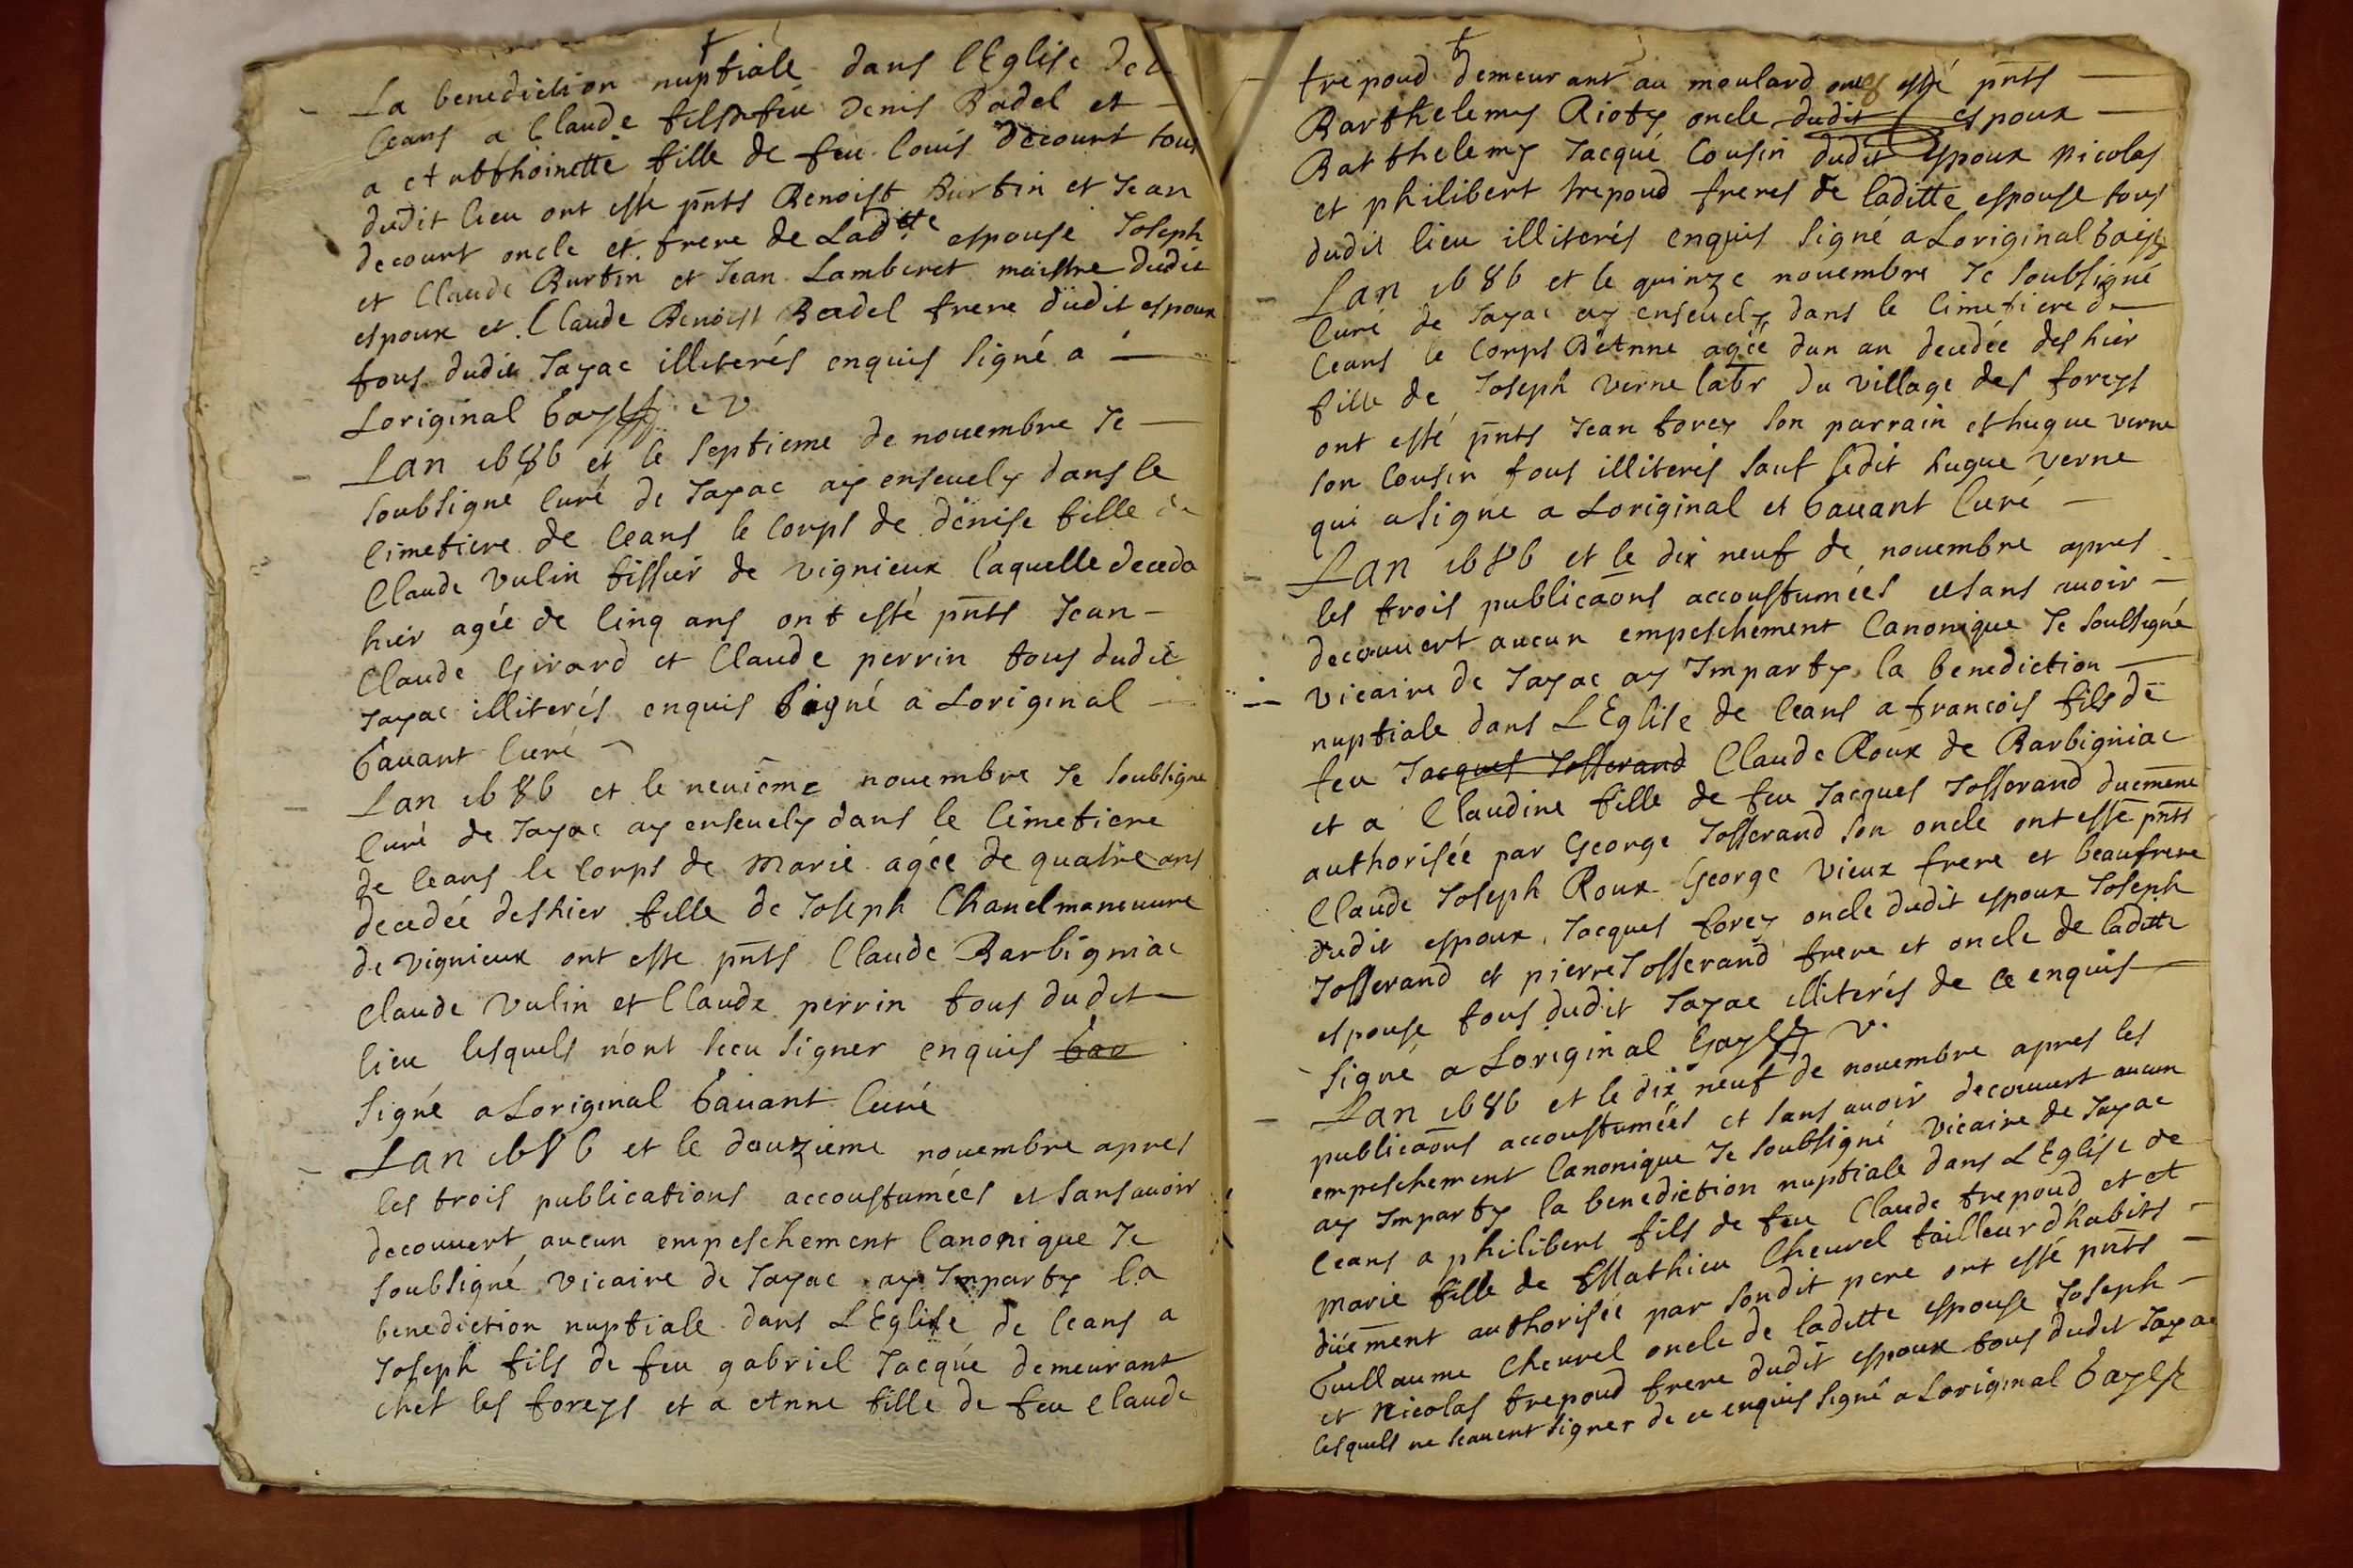 La benediction nuptiale dans l'Eglise de
ceans a Claude fils feu denis Badel et
a Anthoinette fille de feu louis decourt tous
dudit lieu ont esté pnts Benoist Burtin et Jean
decourt oncle et frere de Ladtte espouse Joseph
et Claude Burtin et Jean Lamberet maistre dudit
espoux et Claude Benoist Badel frere dudit espoux
tous dudit Jayac illiterés enquis signé a
Loriginal v
Lan 1686 et le septieme de nouembre Je
soubsigné Curé de Jayac ay enseuely dans le
Cimetiere de ceans le Corps de denise fille de
Claude Vulin tissier de vignieux laquelle deceda
hier agée de Cinq ans ont esté pnts Jean
Claude Girard et Claude perrin tous dudit
Jayac illiterés enquis signé a Loriginal
bauant Curé
Lan 1686 et le neuieme nouembre Je soubsigne
Curé de Jayac ay enseuely dans le Cimetiere
de ceans le Corps de Marie agée de quatre ans
decedée deshier fille de Joseph Chanel maneuure
de vignieux ont esté pnts Claude Barbigniac
Claude Vulin et Claude perrin tous dudit
lieu lesquels n'ont sceu signer enquis bau
signé a Loriginal bauant Curé
Lan 1686 et le douzieme nouembre apres
les trois publications accoustumées et sans auoir
decouuert aucun empeschement Canonique Je
soubsigné vicaire de Jayac ay Imparty la
benediction nuptiale dans L'Eglise de ceans a
Joseph fils de feu gabriel Jacqué demeurant
chet les foreys et a Anne fille de feu Claude
trepoud demeurant au moulard ont esté pnts
Barthelemy Rioty oncle dudit espoux
Barthelemy Jacqué Cousin dudit espoux nicolas
et philibert trepoud freres de laditte espouse tous
dudit lieu illiterés enquis signé a Loriginal
Lan 1686 et le quinze nouembre Je soubsigné
Curé de Jayac ay enseuely dans le Cimetiere de
ceans le Corps d'Anne agée dun an decedée deshier
fille de Joseph Verne labr du village des foreys
ont esté pnts Jean forey son parrain et hugue verne
son Cousin tous illiterés sauf ledit hugue Verne
qui a signé a Loriginal et bauant Curé
Lan 1686 et le dix neuf de nouembre apres
les trois publicaons accoustumées et sans auoir
decouuert aucun empeschement Canonique Je soubsigné
vicaire de Jayac ay Imparty la benediction
nuptiale dans L'Eglise de ceans a francois fils de
feu Jacques Josserand Claude Roux de Barbigniac
et a Claudine fille de feu Jacques Josserand duemene
authorisée par George Josserand son oncle ont esté pnts
Claude Joseph Roux George Vieux frere et beaufrere
dudit espoux, Jacques forey oncle dudit espoux Joseph
Josserand et pierre Josserand frere et oncle de laditte
espouse tous dudit Jayac illiterés de ce enquis
signé a Loriginal v.
Lan 1686 et le dix neuf de nouembre apres les
publicaons accoustumées et sans auoir decouuert aucun
empeschement Canonique Je soubsigné vicaire de Jayac
ay Imparty la benediction nuptiale dans L'Eglise de
ceans a philibert fils de feu Claude trepoud et a
marie fille de Mathieu Cheurel tailleur d'habits
duement authorisée par sondit pere ont esté pnts
Guillaume Cheurel oncle de laditte espouse Joseph
et Nicolas trepoud frere dudit espoux tous dudit Jayac
lesquels ne scauent signer de ce enquis signé a Loriginal